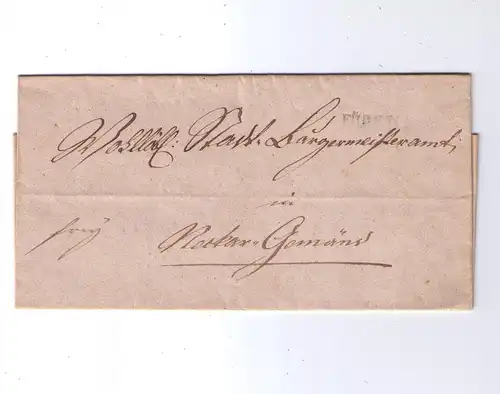 Wohllöbl: Stadt-Bürgermeisteramt
in
frey
Neckar-Gemünd